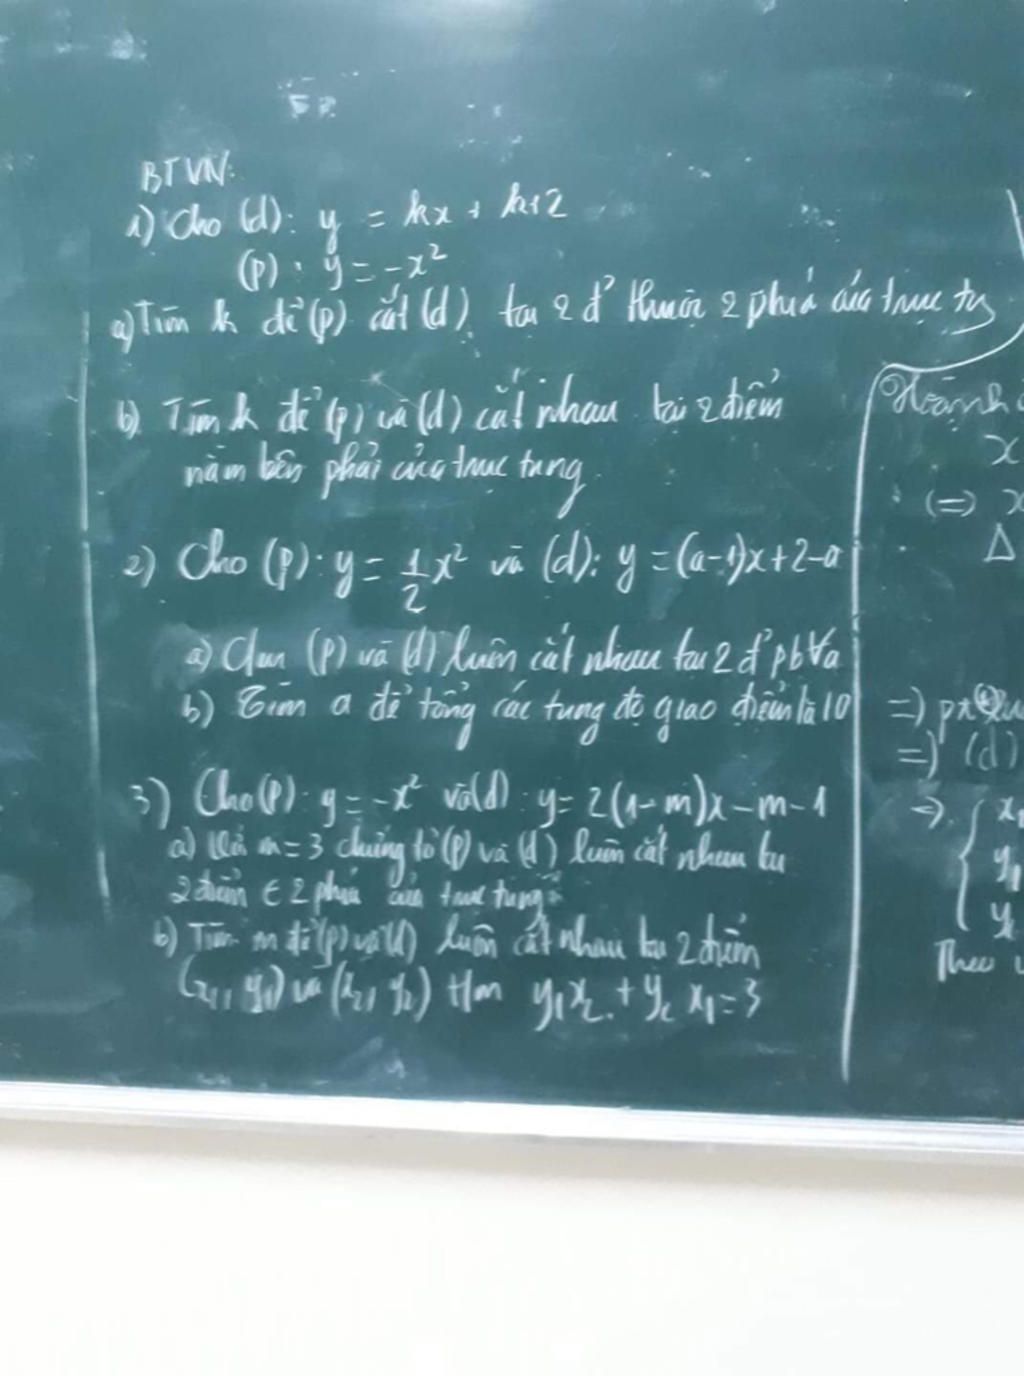 BTVN:
1) Cho (d): y = kx + k+2
(P): y = -x²
a) Tìm k để (P) cắt (d) tại 2 đ' thuộc 2 phía của trục ty
b) Tìm k để (P) và (d) cắt nhau tại 2 điểm
nằm bên phải của trục tung
2) Cho (P): y = 1/2 x² và (d): y = (a-1)x+2-a
a) Cm (P) và (d) luôn cắt nhau tại 2 đ' pb ∀a
b) Tìm a để tổng các tung độ giao điểm là 10
3) Cho (P): y = -x² và (d): y = 2(1-m)x-m-1
a) Khi m=3 chứng tỏ (P) và (d) luôn cắt nhau tại
2 điểm ∈ 2 phía của trục tung
b) Tìm m để (P) và (d) luôn cắt nhau tại 2 điểm
(x₁, y₁) và (x₂, y₂) t/m y₁x₂ + y₂x₁=3
Hoành
x
(=)
Δ
=) pt
=) (d)
=>
y₁
Theo